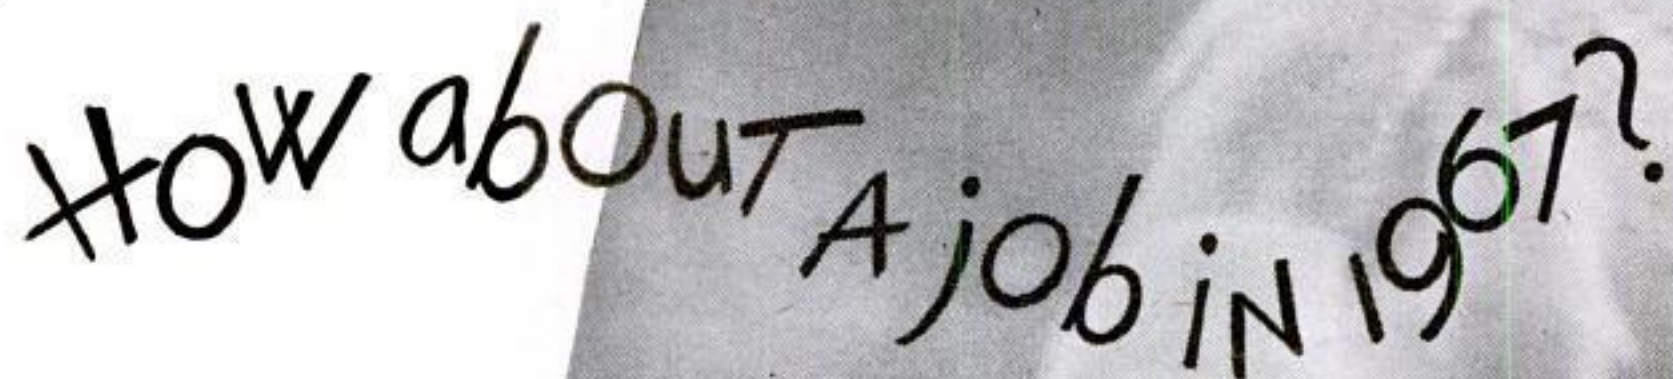 How about A job in 1967?